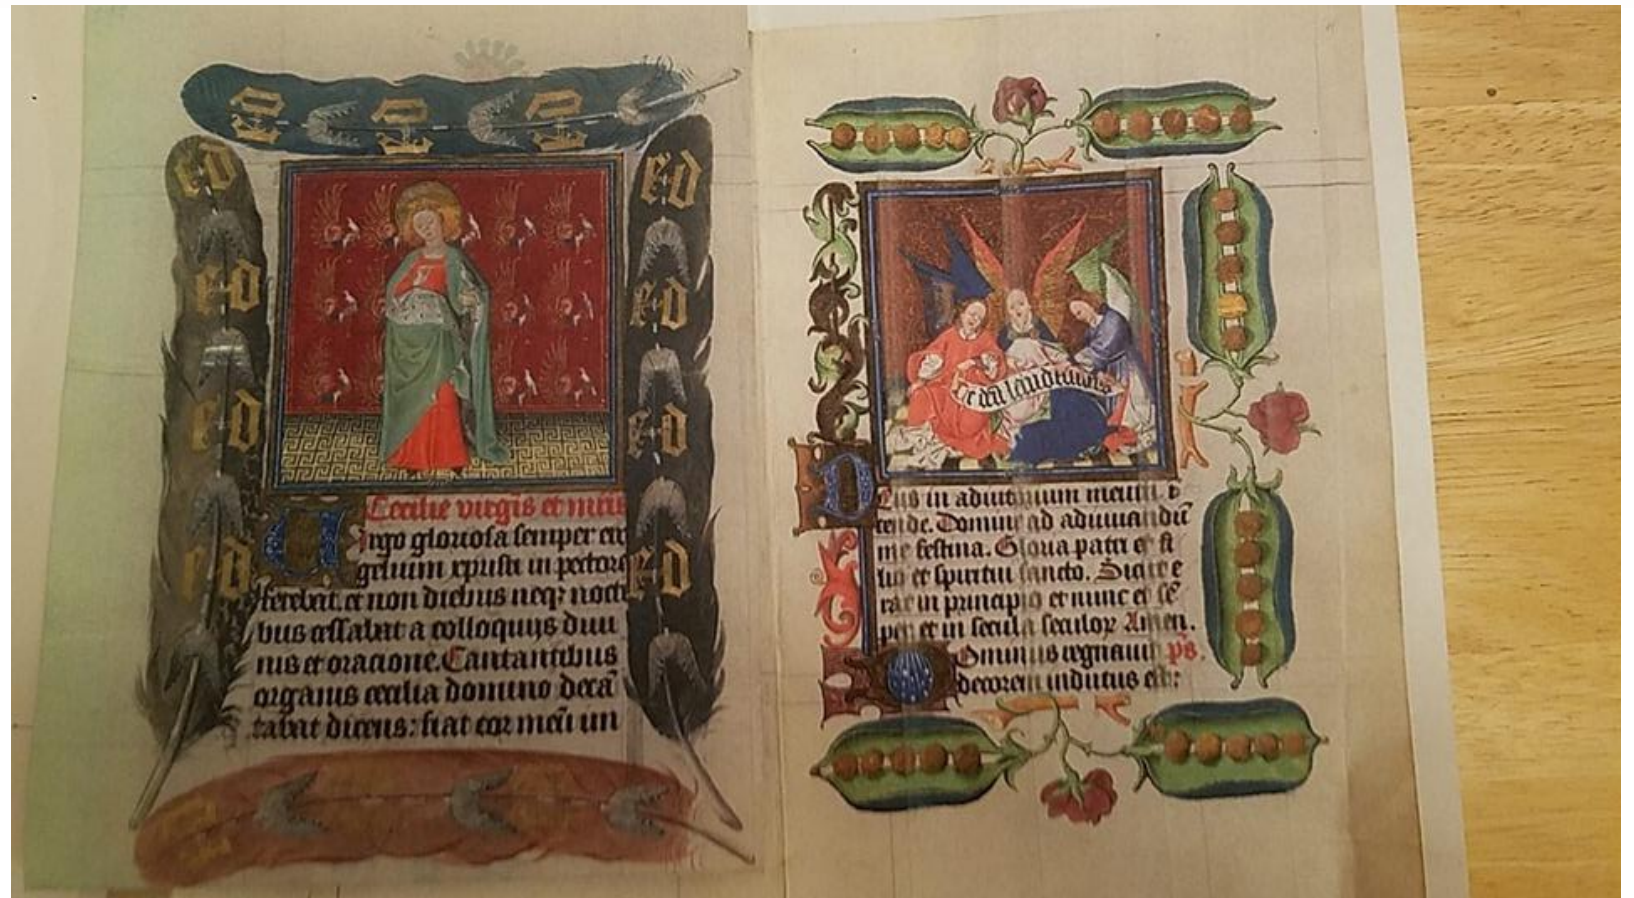 e d
e d
e d
e d
e d
e d
e d
e d
e d
e d
e d
Cecilie virgis et mris
Virgo gloriosa semper eu
gelium xpristi in pectore
ferebat. et non diebus neqȝ nocti
bus cessabat a colloquijs diui
nis et oracione. Cantantibus
organis cecilia domino decā
tabat dicens: fiat cor meū im
Te deū laudamus
Deus in adiutorium meum. i
tende. Domine ad adiuuandū
me festina. Gloria patri et fi
lio et spiritui sancto. Sicut e
rat in principio et nunc et sē
per et in secula seculoꝝ Amen.
Dominus regnauit ps.
decorem indutus est: